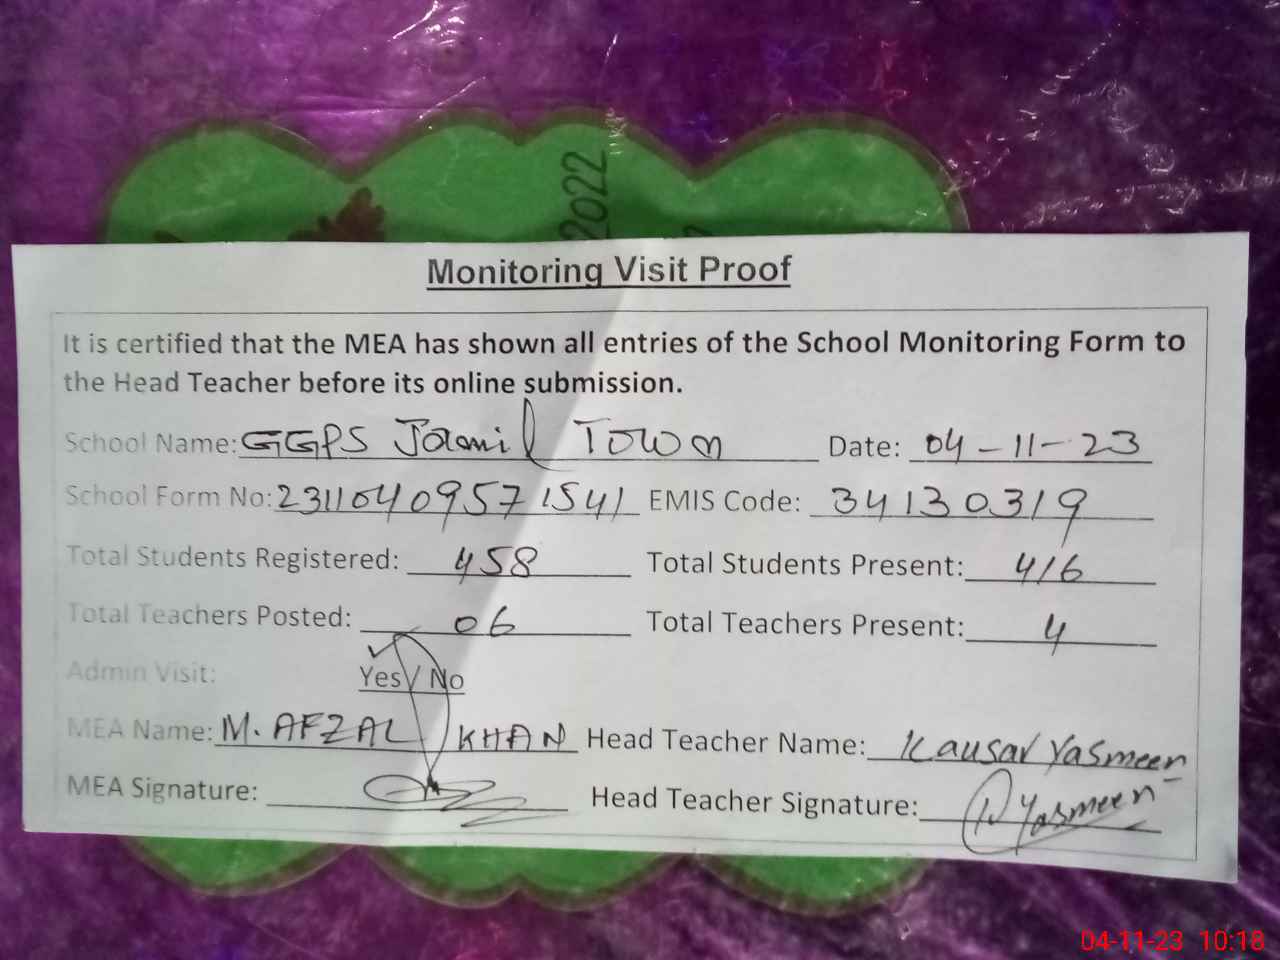 2022
Monitoring Visit Proof
It is certified that the MEA has shown all entries of the School Monitoring Form to
the Head Teacher before its online submission.
School Name: GGPS Jamil Town Date: 04-11-23
School Form No: 2311040957 1541 EMIS Code: 34130319
Total Students Registered: 458 Total Students Present: 416
Total Teachers Posted: 06 Total Teachers Present: 4
Admin Visit: Yes / No
MEA Name: M. AFZAL KHAN Head Teacher Name: Kausar Yasmeen
MEA Signature: Head Teacher Signature: Yasmeen
04-11-23 10:18